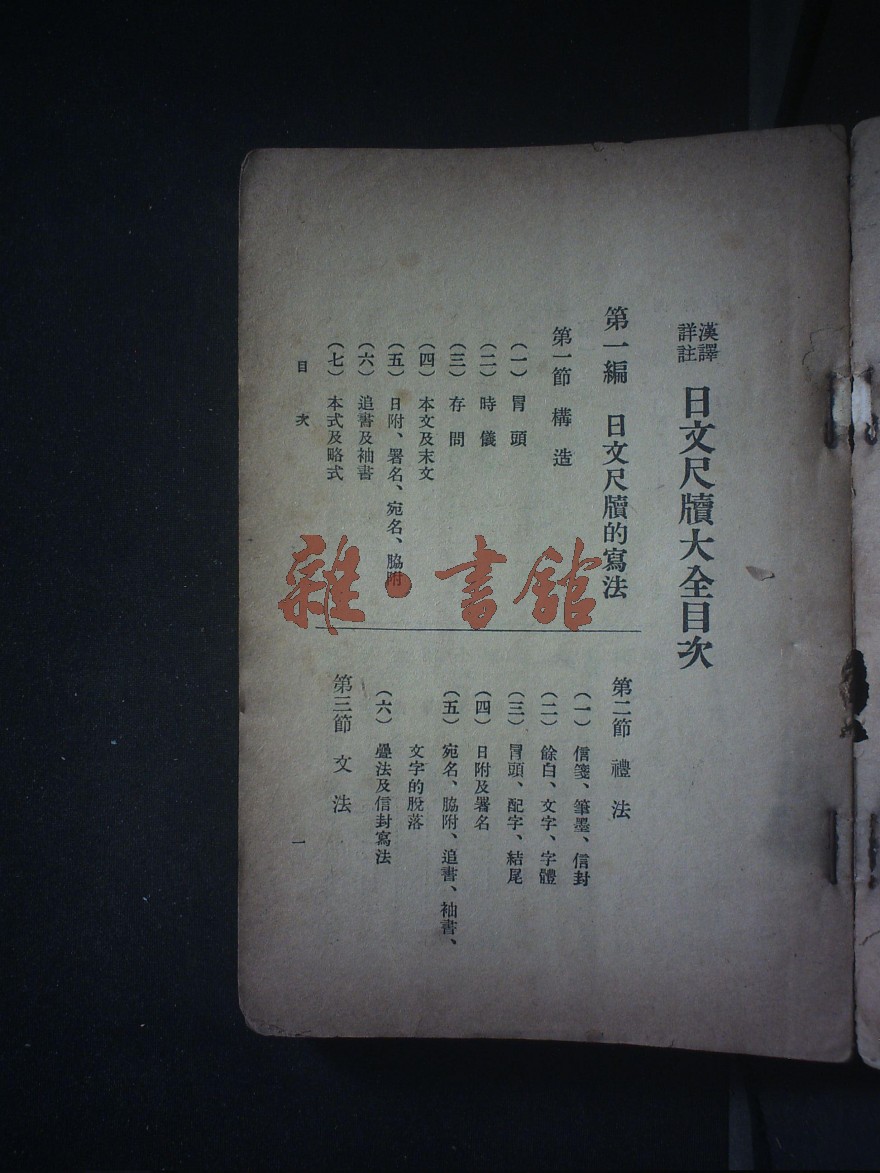 漢譯
詳註
日文尺牘大全目次
第一編　日文尺牘的寫法
第一節　構造
(一)　冒頭
(二)　時儀
(三)　存問
(四)　本文及末文
(五)　日附、署名、宛名、脇附
(六)　追書及袖書
(七)　本式及略式
第二節　禮法
(一)　信箋、筆墨、信封
(二)　餘白、文字、字體
(三)　冒頭、配字、結尾
(四)　日附及署名
(五)　宛名、脇附、追書、袖書、
文字的脫落
(六)　疊法及信封寫法
第三節　文法
目次
一
雜·書館